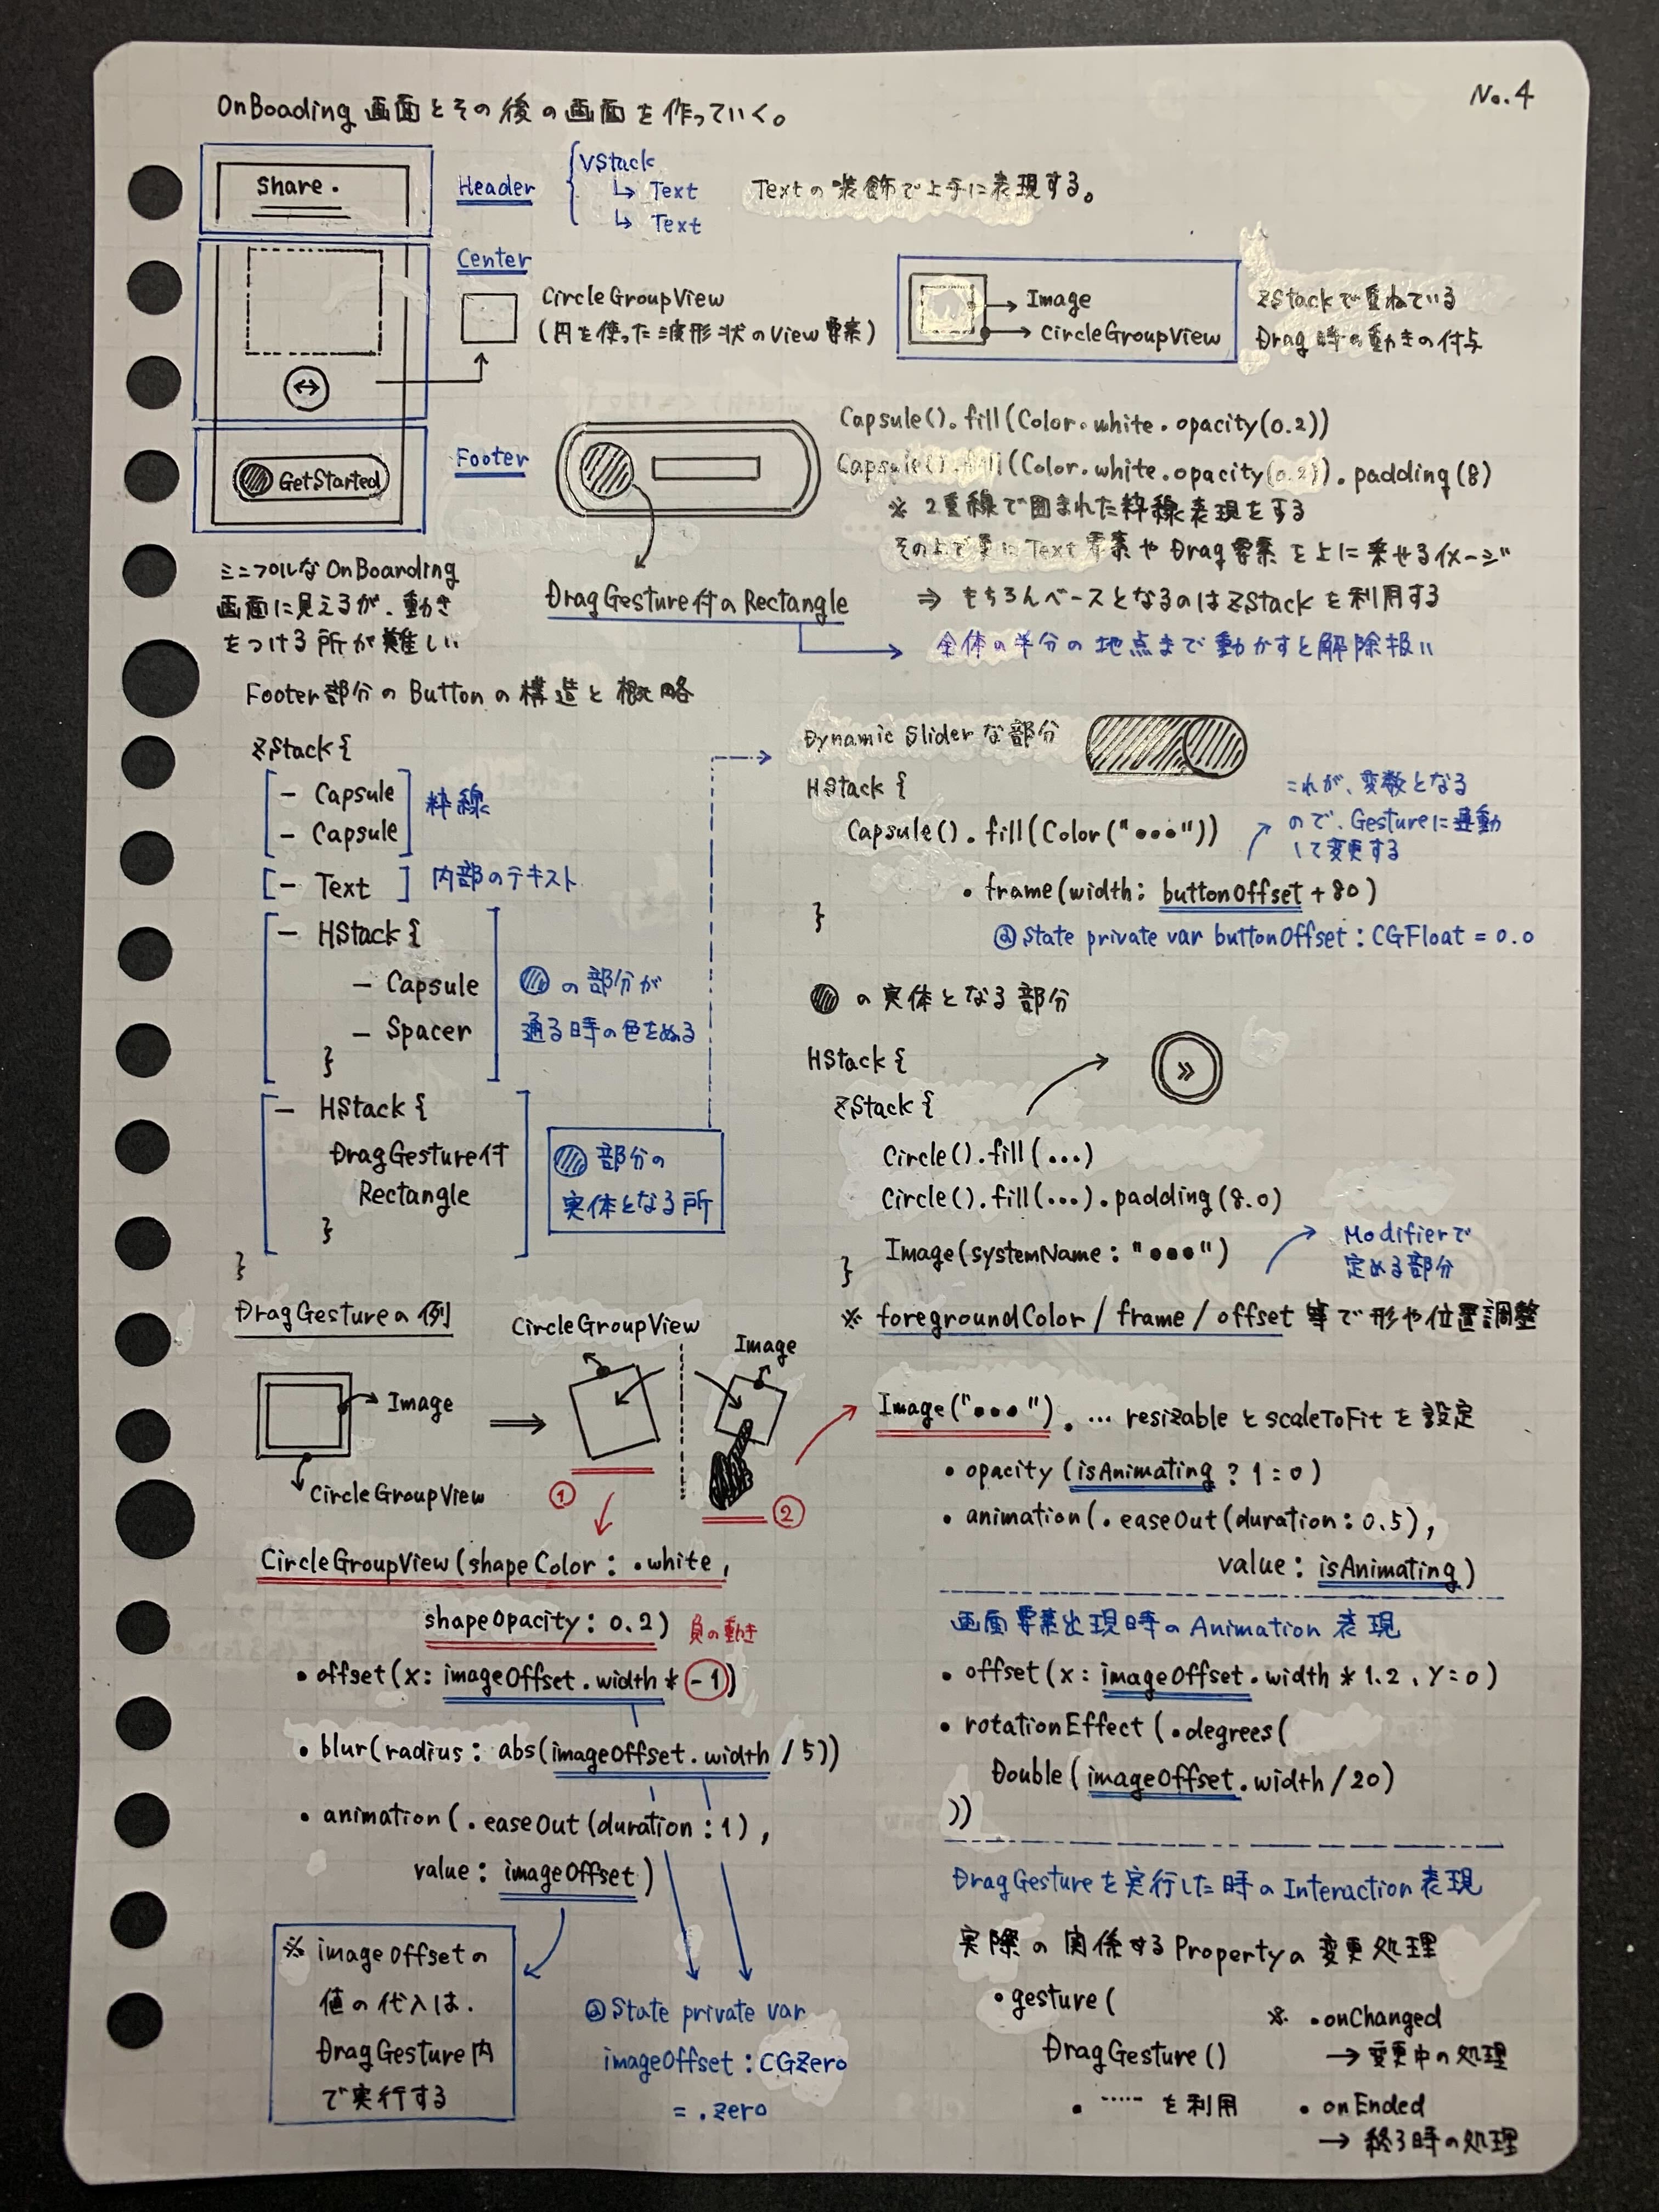 No.4
OnBoading 画面とその後の画面を作っていく。
Share.
Header
VStack
↳ Text
↳ Text
Textの装飾で上手に表現する。
Center
CircleGroupView
(円を使った波形状のView要素)
→ Image
→ CircleGroupView
ZStackで重ねている
Drag時の動きの付与
GetStarted
Footer
Capsule().fill(Color.white.opacity(0.2))
Capsule().fill(Color.white.opacity(0.2)).padding(8)
※ 2重線で囲まれた枠線表現をする
その上で更にText要素やDrag要素を上に乗せるイメージ
⇒ もちろんベースとなるのはZStackを利用する
DragGesture付のRectangle
全体の半分の地点まで動かすと解除扱い
ミニマルなOnBoarding
画面に見えるが、動き
をつける所が難しい
Footer部分のButtonの構造と概略
ZStack {
- Capsule
- Capsule
枠線
- Text
内部のテキスト
- HStack {
- Capsule
- Spacer
}
の部分が
通る時の色をぬる
- HStack {
DragGesture付
Rectangle
}
部分の
実体となる所
}
Dynamic Sliderな部分
HStack {
Capsule().fill(Color("•••"))
.frame(width: buttonOffset + 80)
}
これが、変数となる
ので、Gestureに連動
して変更する
@State private var buttonOffset : CGFloat = 0.0
の実体となる部分
HStack {
ZStack {
Circle().fill(...)
Circle().fill(...).padding(8.0)
Image(systemName: "•••")
}
»
Modifierで
定める部分
※ foregroundColor / frame / offset 等で形や位置調整
DragGestureの例
→ Image
CircleGroupView
CircleGroupView
Image
①
②
CircleGroupView(shapeColor: .white,
shapeOpacity: 0.2)
負の動き
• offset(x: imageOffset.width * -1)
• blur(radius: abs(imageOffset.width / 5))
• animation(.easeOut(duration: 1),
value: imageOffset)
※ imageOffsetの
値の代入は、
DragGesture内
で実行する
@State private var
imageOffset : CGZero
= .zero
Image("•••"). … resizableとscaleToFitを設定
• opacity (isAnimating ? 1 : 0)
• animation(.easeOut(duration: 0.5),
value: isAnimating)
画面要素出現時のAnimation 表現
• offset(x: imageOffset.width * 1.2, Y=0)
• rotationEffect (.degrees(
Double (imageOffset.width / 20)
))
DragGestureを実行した時のInteraction表現
実際の関係するPropertyの変更処理
• gesture (
DragGesture ()
• …… を利用
※ • onChanged
→ 変更中の処理
• onEnded
→ 終了時の処理